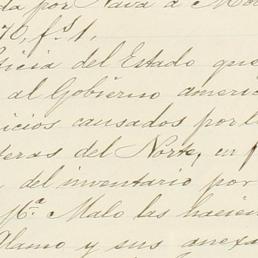 da por Nava a Ma
70, f.s 1.
ticia del Estado que
al Gobierno america
icios causados por l
teras del Norte, en p
del inventario por
Ma. Malo las hacien
Alamo y sus anexa